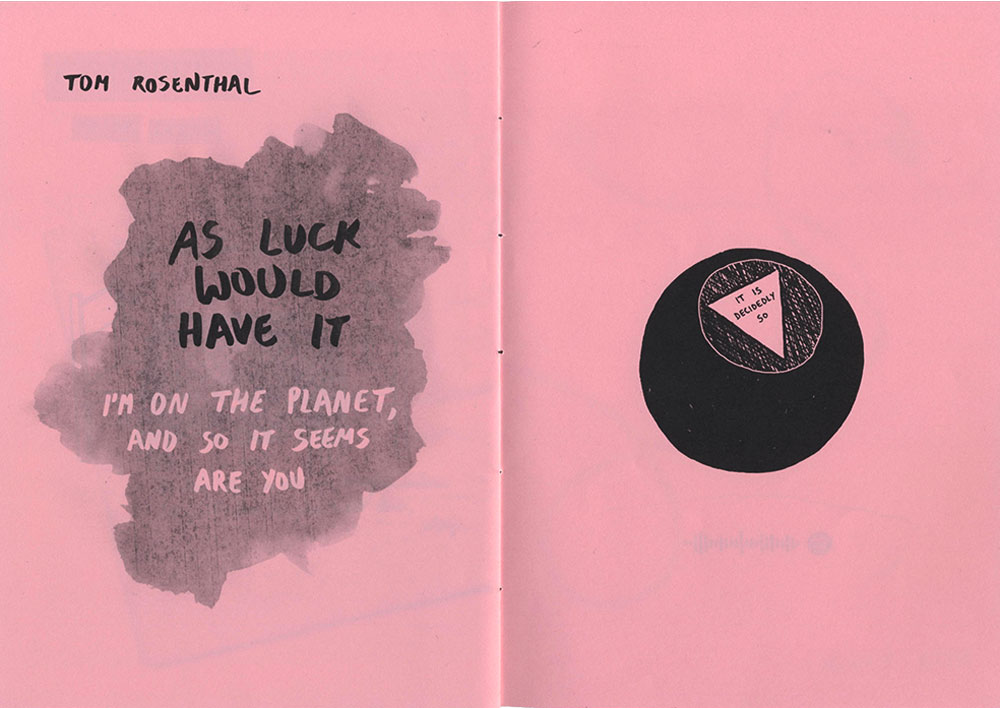 TOM ROSENTHAL
AS LUCK
WOULD
HAVE IT
I'M ON THE PLANET,
AND SO IT SEEMS
ARE YOU
IT IS
DECIDEDLY
SO